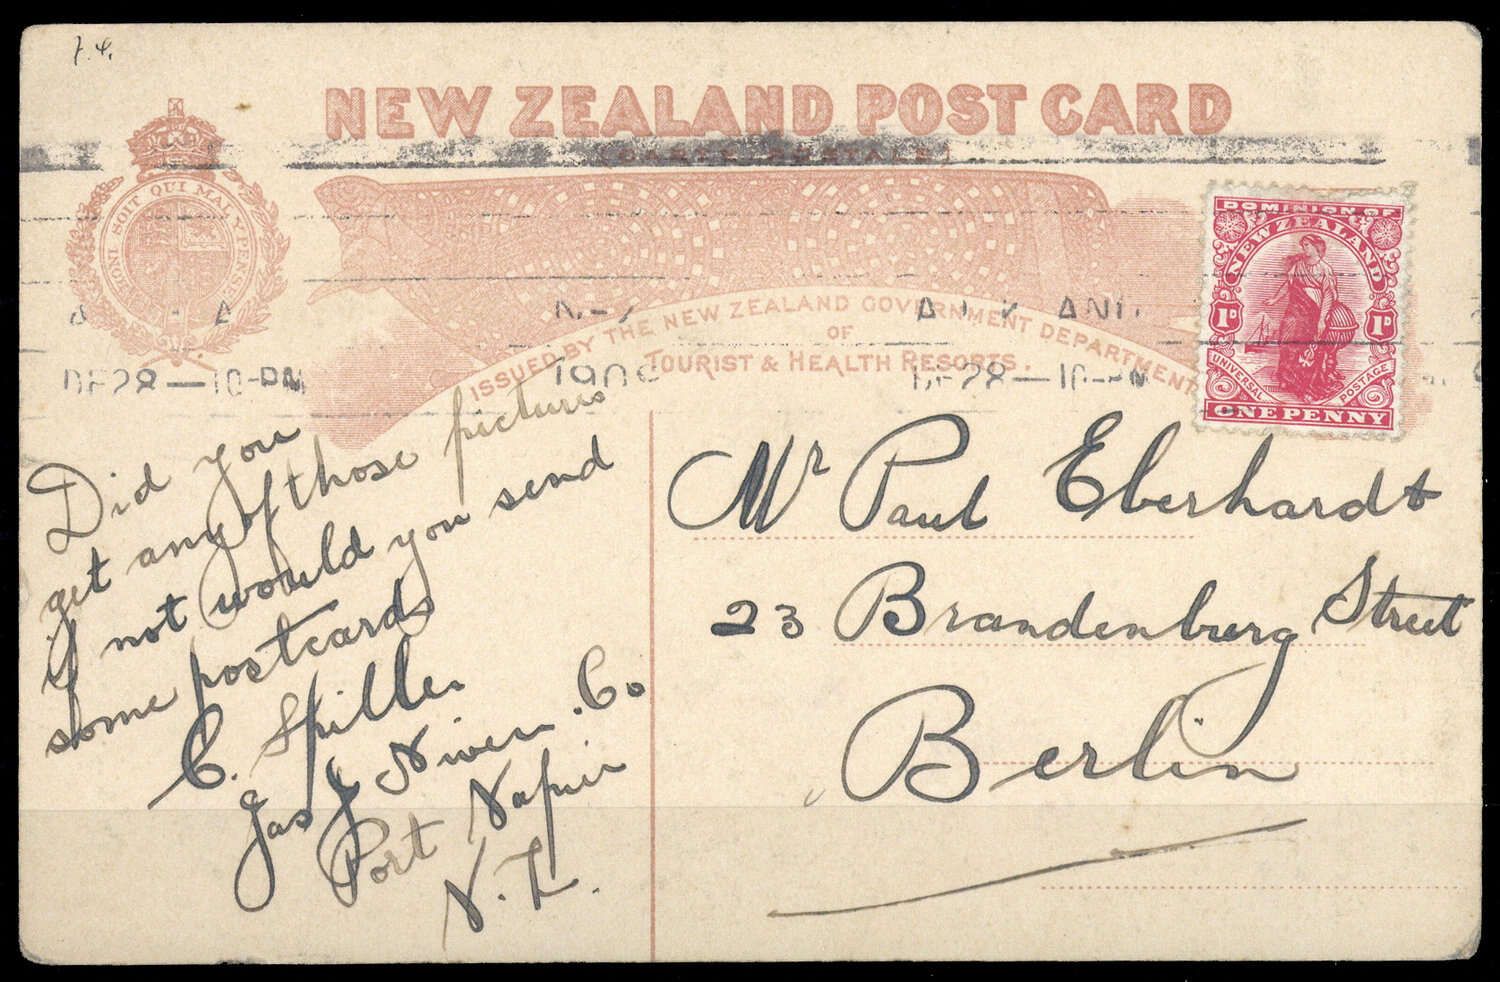 NEW ZEALAND POST CARD
(CARTE POSTALE)
HONI SOIT QUI MAL Y PENSE
ISSUED BY THE NEW ZEALAND GOVERNMENT DEPARTMENT
OF
TOURIST & HEALTH RESORTS.
DOMINION OF
NEW ZEALAND
1D 1D
UNIVERSAL POSTAGE
ONE PENNY
DE 28 — 10-PM
DE 28 — 10-PM
Did you
get any of those pictures
if not would you send
some postcards
C. Spiller
Jas J Niven. Co
Port Napier
N.Z.
Mr Paul Eberhardt
23 Brandenburg Street
Berlin